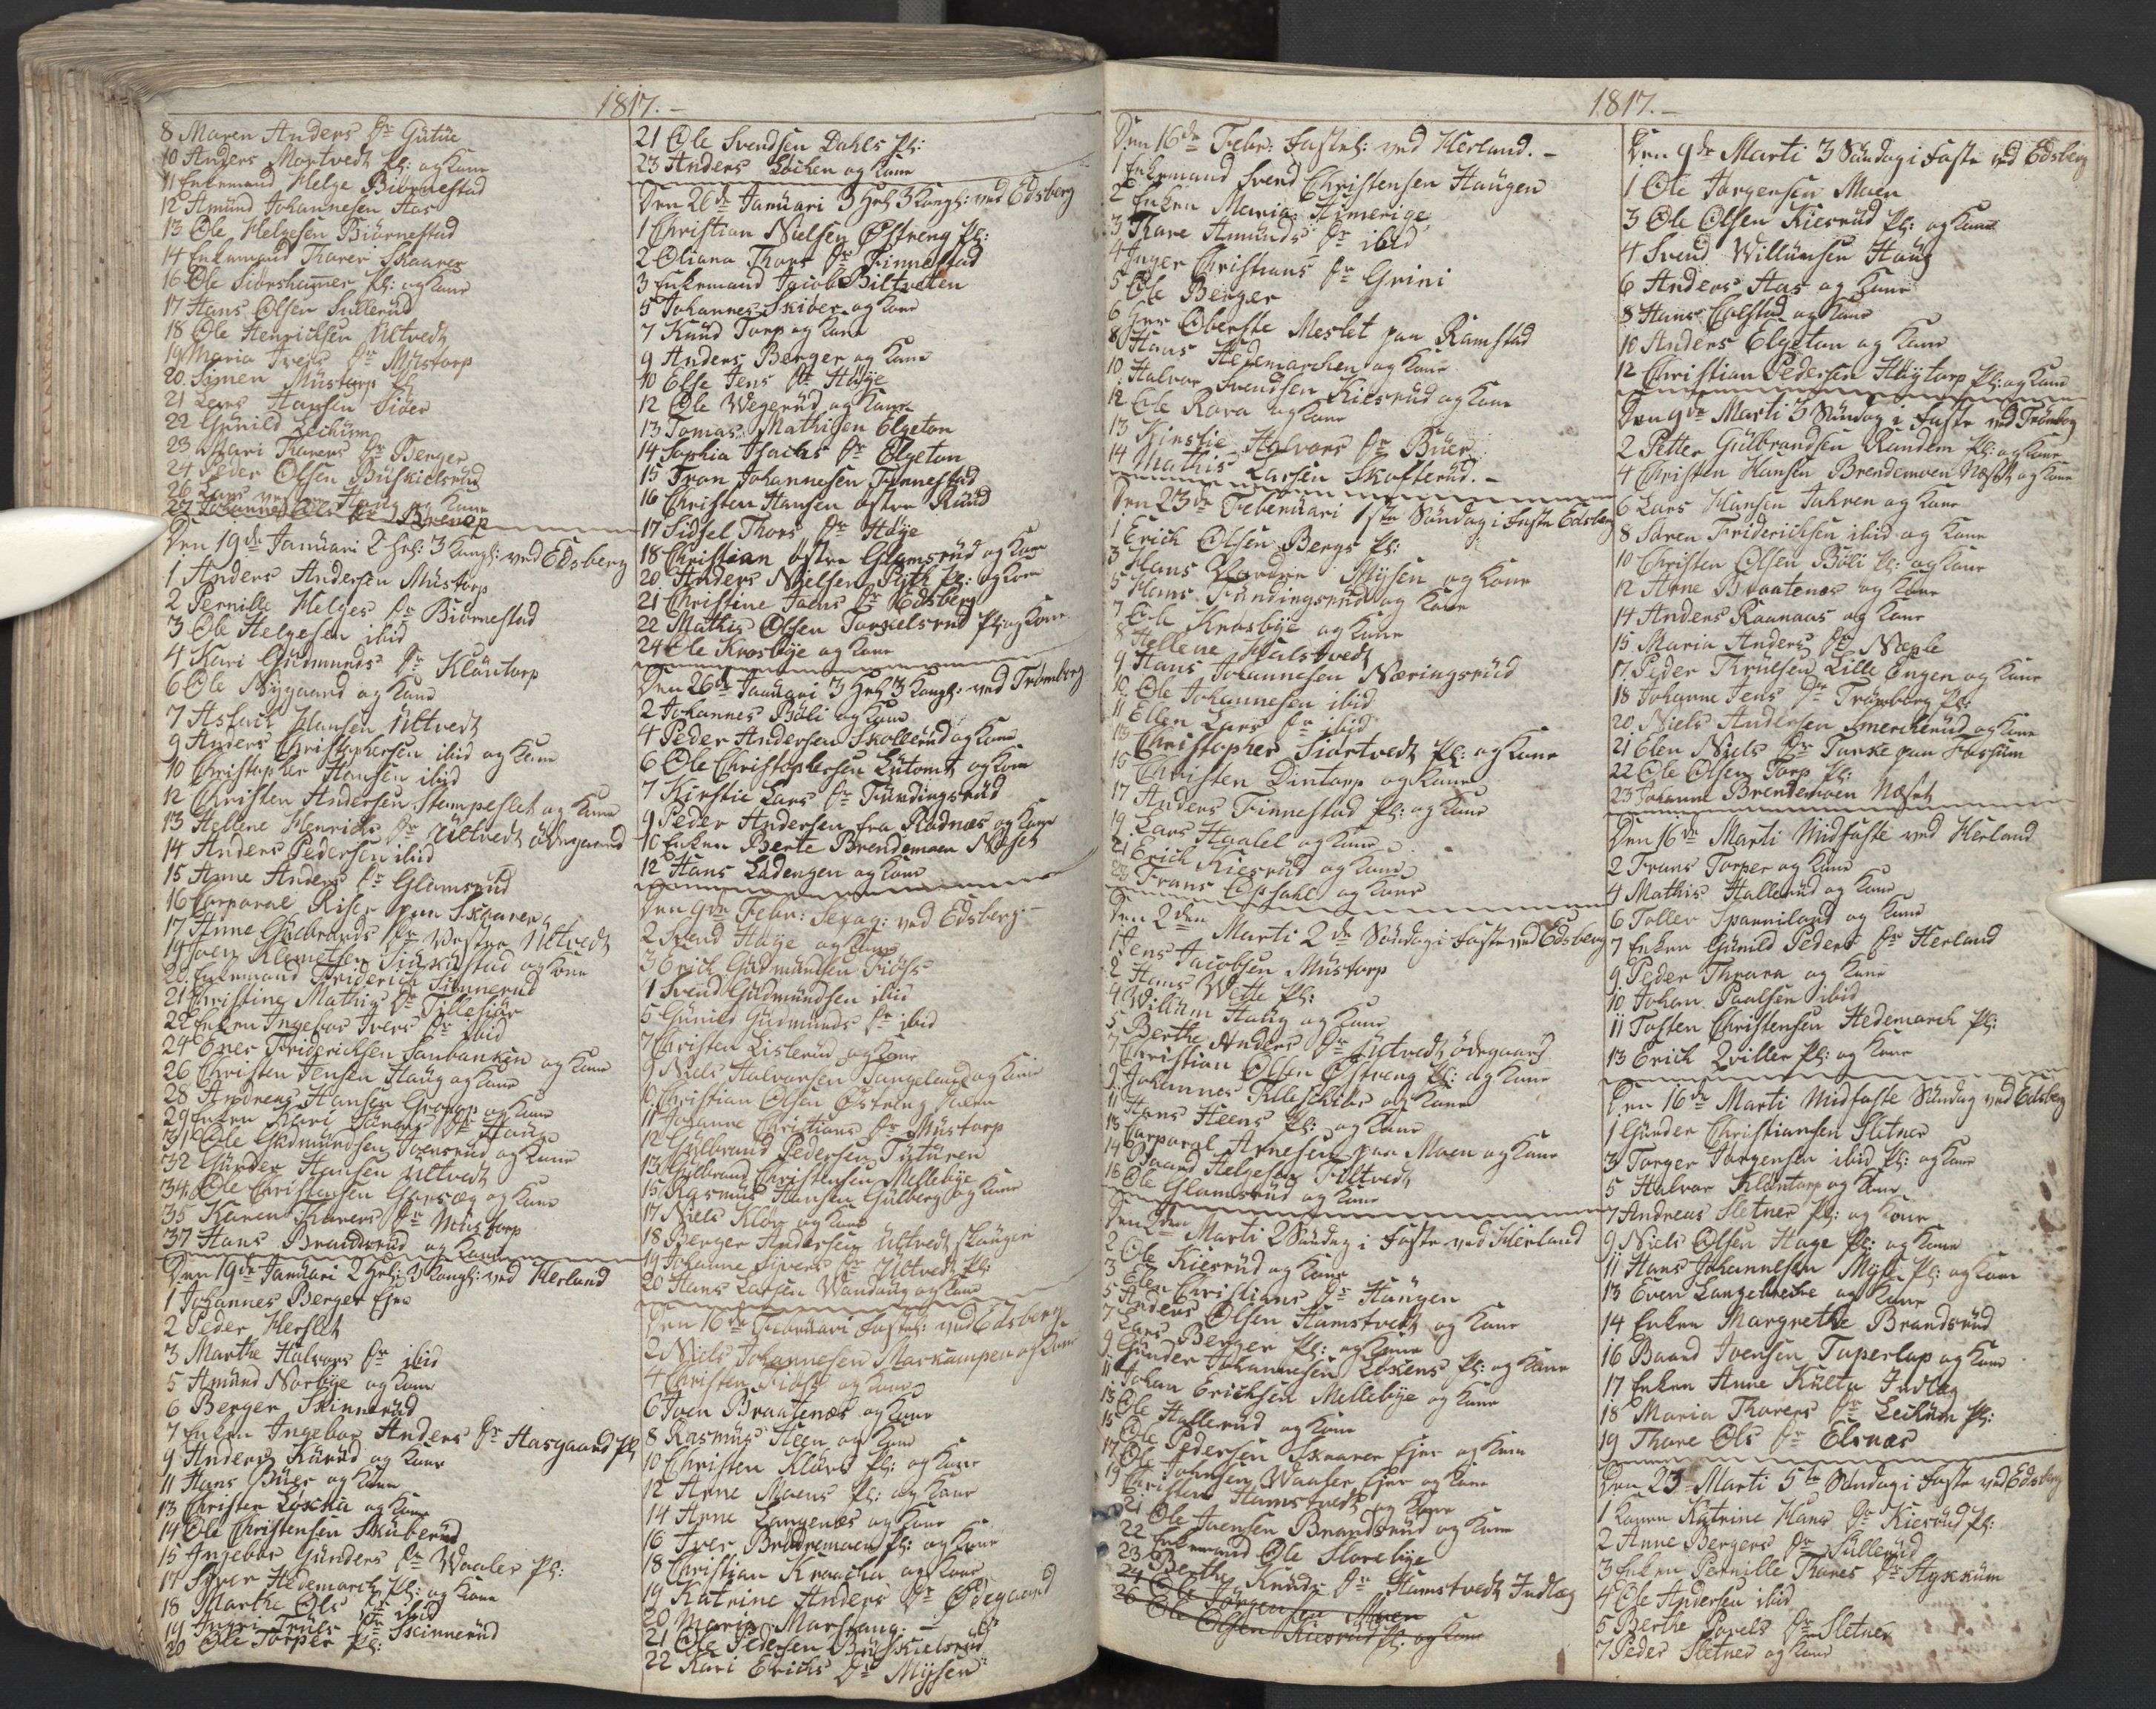 1817.
8 Maren Anders Dr Gütüe
10 Anders Mortvedt Pl: og Kone
11 Enkemand Helge Biörnestad
12 Amünd Johannesen Aas
13 Ole Helgesen Biörnestad
14 Enkemand Thorer Skaarer
16 Ole Siörsheimer Pl: og Kone
17 Hans Olsen Sullerüd
18 Ole Henrichsen Ültvedt
19 Maria Ivers Dr Müstorp
20 Simen Müstorp
21 Lars Hansen Siöer
22 Günild Lechüm
23 Mari Thorers Dr Berger
24 Peder Olsen Büskielsrüd
26 Lars vestre Haug og Kone
27 Johannes Brenep
Den 19de Januari 2 Hel: 3 Kongl: ved Edsberg
1 Anders Andersen Müstorp
2 Pernille Helges Dr Biörnestad
3 Ole Helgesen ibid
4 Kari Güdmunds Dr Klüntorp
6 Ole Nygaard og Kone
7 Aslach Hansen Ültvedt
9 Anders Christophersen ibid og Kone
10 Christopher Hansen ibid
12 Christen Andersen Stempeslet og Kone
13 Hellene Henrichs Dr Ültvedt ödegaard
14 Anders Pedersen ibid
15 Anne Anders Dr Glamsrüd
16 Corporal Riser paa Skaarer
17 Anne Gülbrands Dr Westre Ültvedt
19 Joen Klemetsen og Kone
20 Enkemand Friderich Timnerud
21 Christine Mathis Dr Tillesiör
22 Enken Ingebor Ivers Dr ibid
24 Ener Friderichsen Sanbanken og Kone
26 Christen Jensen Haug og Kone
28 Andreas Hansen og Kone
29 Enken Kari Dr Haüge
31 Ole Gudmundsen Joensrud og Kone
32 Günder Hansen Ültvedt
34 Ole Christensen Garsæg og Kone
35 Karen Thorers Dr Müstorp
37 Hans Brandsrud og Kone
Den 19de Januari 2 Hel: 3 Kongl: ved Herland
1 Johannes Berger Ejer
2 Peder Herslet
3 Marthe Halvors Dr ibid
5 Amünd Norbye og Kone
6 Berger Skinnerüd
7 Enken Ingebor Anders Dr Aasgaard Pl
9 Anders Rürüd og Kone
11 Hans Büer og Kone
13 Christen Löskia og Kone
14 Ole Christensen Sküberüd
15 Ingebor Günders Dr Waaler Pl:
17 Syver Hedemarch Pl: og Kone
18 Marthe Ols Dr ibid
19 Ingri Trüls Dr Skinnerüd
20 Ole Torper Pl:
21 Ole Svendsen Dahls Pl:
23 Anders Löcken og Kone
Den 26de Januari 3 Hel 3 Kongl: ved Edsberg
1 Christian Nielsen Östreng Pl:
2 Oliana Thors Dr Finnestad
3 Enkemand Jacob Biltvedten
5 Johannes Skiöer og Kone
7 Knud Torp og Kone
9 Anders Berger og Kone
10 Else Jens Dr Höye
12 Ole Wegerüd og Kone
13 Tomas Mathisen Elgeton
14 Sophia Isachs Dr Elgeton
15 Tron Johannesen Finnestad
16 Christen Hansen östre Rüüd
17 Sidsel Thors Dr Höye
18 Christian östre Glamsrüd og Kone
20 Anders Nielsen Pl: og Kone
21 Christine Joens Dr Edsberg
22 Mathis Olsen Torkelsrud Pl: og Kone
24 Ole Krosbye og Kone
Den 26de Januari 3 Hel 3 Kongl: ved Trömborg
2 Johannes Böli og Kone
4 Peder Andersen Skollerüd og Kone
6 Ole Christophersen Lütomt og Kone
7 Kirstie Lars Dr Fündingsrüd
9 Peder Andersen fra Rödnæs og Kone
10 Enken Berte Brendemoen Næset
12 Hans Ladengen og Kone
Den 9de Febr: Sexag: ved Edsberg.
2 Svend Höye og Kone
3 Erich Gudmundsen Fiöss
4 Svend Gudmündsen ibid
5 Günild Güdmunds Dr ibid
7 Christen Lislerüd og Kone
9 Niels Halvorsen Langeland og Kone
10 Christian Olsen Östreng
11 Johanne Christians Dr Müstorp
12 Gülbrand Pedersen Tütüren
13 Gülbrand Christensen Mellebye
15 Rasmüs Hansen Gülberg og Kone
17 Niels Klöv og Kone
18 Berger Andersen Ültvedt Skaugen
19 Johanne Sivers Dr Ültvedt Pl:
20 Hans Larsen Wandaug og Kone
Den 16de Februari Fastel: ved Edsberg
2 Niels Johannesen Markampen og Kone
4 Christen Fiöss og Kone
6 Iver Braatenæs og Kone
8 Rasmüs Heen og Kone
10 Christen Klöve Pl: og Kone
12 Arne Moens Pl: og Kone
14 Arne Langenæs og Kone
16 Iver Brödremoen Pl: og Kone
18 Christian Kraacha og Kone
19 Katrine Anders Dr Ödegaard
20 Maria Marhaug
21 Ole Pedersen Büskielsrüd
22 Kari Erichs Dr Mysen
1817.
Den 16de Febr: Fastel: ved Herland.
1 Enkemand Svend Christensen Haügen
2 Enken Maria Himerige
3 Thore Amünds Dr ibid
4 Inger Christians Dr Grini
5 Ole Berger
6 Herr Oberste Meslet paa Ramstad
8 Hans Hedemarchen og Kone
10 Halvor Svendsen Kiesrüd og Kone
12 Ole Rora og Kone
13 Kirstie Halvors Dr Büer
14 Mathis Larsen Skofterüd.
Den 23de Februari 1ste Söndag i Faste Edsberg
1 Erich Olsen Bergs Pl:
3 Hans Nordre Mysen og Kone
5 Hans Fündingsrud og Kone
7 Ole Krosbye og Kone
8 Hellene Hialstvedt
9 Hans Johannesen Næringsrüd
10 Ole Johannesen ibid
11 Ellen Lars Dr ibid
13 Christopher Siortvedt Pl: og Kone
15 Christen Dintorp og Kone
17 Anders Finnestad Pl: og Kone
19 Lars Haalel og Kone
21 Erich Kiesrüd og Kone
23 Frans Opsahl og Kone
Den 2den Marti 2de Söndag i Faste ved Edsberg
1 Jens Jacobsen Müstorp
2 Hans Witte Pl:
4 Willüm Haüg og Kone
5 Berthe Anders Dr Ültvedt ödegaard
7 Christian Olsen Östreng Pl: og Kone
9 Johannes Tilleskiör og Kone
11 Hans Heens Pl: og Kone
13 Corporal Arnesen paa Moen og Kone
14 Baard Helgesen Filtvedt
16 Ole Glamsrüd og Kone
Den 2den Marti 2 Söndag i Faste ved Herland
2 Ole Kiesrüd og Kone
3 Elen Christians Dr Haügen
5 Anders Olsen Hamstvedt og Kone
7 Lars Berger Pl: og Kone
9 Günder Johannesen Löxens Pl: og Kone
11 Johan Erichsen Mellebye og Kone
13 Ole Hallerüd og Kone
15 Ole Pedersen Skaarer Ejer og Kone
17 Ole Johnsen Waaler Ejer og Kone
19 Christen Hamstvedt og Kone
21 Ole Joensen Brandsrüd og Kone
22 Enkemand Ole Slorebye
23 Berthe Knüds Dr Hamstvedt Indlæg
24 Ole Jörgensen Moen
26 Ole Olsen Kiesrüd Pl: og Kone
Den 9de Marti 3 Söndag i Faste ved Edsberg
1 Ole Jörgensen Moen
3 Ole Olsen Kiesrüd Pl: og Kone
4 Svend Willumsen Haüg
6 Anders Aas og Kone
8 Hans Colstad og Kone
10 Anders Elgeton og Kone
12 Christian Pedersen Höytorp Pl: og Kone
Den 9de Marti 3 Söndag i Faste ved Trömborg
2 Petter Gülbrandsen Rundem Pl: og Kone
4 Christen Hansen Brendemoen Næset og Kone
6 Lars Hansen Jahren og Kone
8 Sören Friderichsen ibid og Kone
10 Christen Olsen Böli Pl: og Kone
12 Arne Braatenæs og Kone
14 Anders Raanaas og Kone
15 Maria Anders Dr Neple
17 Peder Trülsen Lille Engen og Kone
18 Johanne Jens Dr Trömborg Pl:
20 Niels Andersen Smercherüd og Kone
21 Elen Niels Dr Tanske paa Fossum
22 Ole Olsen Torp Pl:
23 Johanne Brendemoen Næset
Den 16de Marti Midfaste ved Herland
2 Frans Torper og Kone
4 Mathis Hallerüd og Kone
6 Toller Spanniland og Kone
7 Enken Günild Peders Dr Herland
9 Peder Throra og Kone
10 Johan Paalsen ibid
11 Tosten Christensen Hedemarch Pl:
13 Erich Qviller Pl: og Kone
Den 16de Marti Midfaste Söndag ved Edsberg
1 Günder Christiansen Sletner
3 Torger Jörgensen ibid Pl: og Kone
5 Halvor Klöntorp og Kone
7 Andreas Sletner Pl: og Kone
9 Niels Olsen Hage Pl: og Kone
11 Hans Johannesen Mysen Pl: og Kone
13 Even Langebreche og Kone
14 Enken Margrethe Brandsrüd
16 Baard Ivensen Taperlap og Kone
17 Enken Anne Kultu Indlæg
18 Maria Thorers Dr Lechüm Pl:
19 Thore Ols Dr Elvnæs
Den 23 Marti 5te Söndag i Faste ved Edsberg
1 Karen Katrine Hans Dr Kiesrüd Pl:
2 Anne Bergers Dr Süllerüd
3 Enken Pernille Thores Dr Stykküm
4 Ole Andersen ibid
5 Berthe Povels Dr Sletner
7 Peder Sletner og Kone